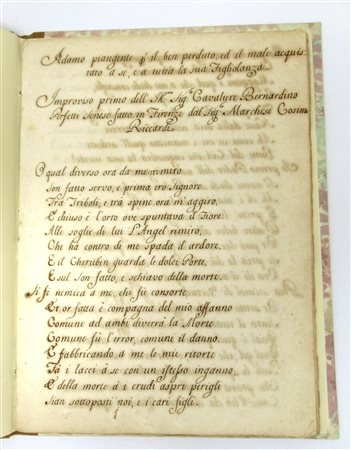 Adamo piangente p il ben perduto, ed il male acquis
tato a se, e a tutta la sua Figliolanza
Improviso primo dell' Sig.e Cavalier Bernardino
Perfetti Senese fatto in Firenze dal Sig.e Marchese Cosim
Riccardi
O qual diverso ora da me rimiro
Son fatto servo, e prima ero Signore
Trà Triboli, e trà spine ora m'aggiro,
E chiuso è l'orto ove spuntava il Fiore
Alle soglie di lui L'Angel rimiro,
Che hà contro di me spada d'ardore,
E il Cherubin guarda le dolci Porte,
E sul son fatto, e schiavo della morte.
Si fè nemica a me, chi fù consorte,
Et or fatta è compagna del mio affanno
Comune ad ambi diverrà la Morte
Comune fù l'error, comune il danno.
E fabbricando a me le mie ritorte
Fà i lacci à se con un istesso inganno,
E della morte à i crudi aspri perigli
Sian sottoposti noi, e i cari figli.